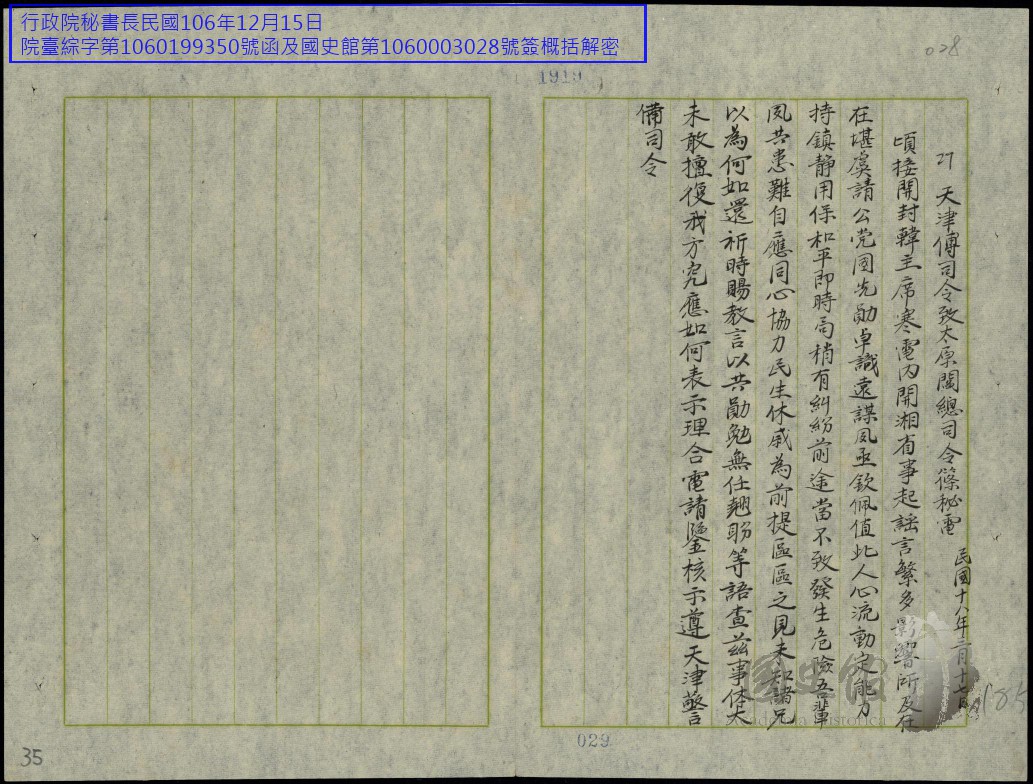 行政院秘書長民國106年12月15日
院臺綜字第1060199350號函及國史館第1060003028號簽概括解密
028
1919
27 天津傅司令致太原閻總司令篠秘電 民國十八年三月十七日
頃接開封韓主席寒電內開湘省事起謠言繁多影響所及在
在堪虞請公党國先勛卓識遠謀夙亟欽佩值此人心流動定能力
持鎮静用保和平即時局稍有糾紛前途當不致發生危險吾輩
夙共患難自應同心協力民生休戚為前提區區之見未知諸兄
以為何如還祈時賜教言以共勛勉無任翹盼等語查茲事体大
未敢擅復我方究應如何表示理合電請鑒核示遵天津警
備司令
國史館
Academia Historica
029
35